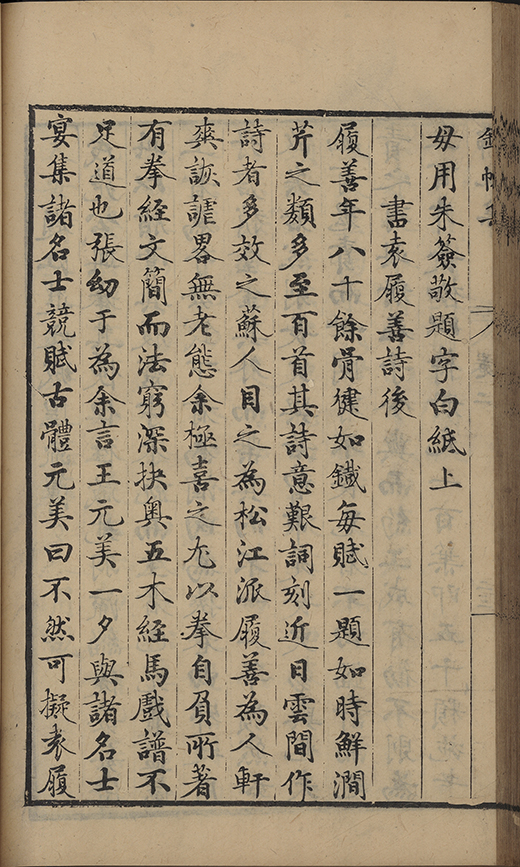 毋用朱簽敬題字白紙上
書袁履善詩後
履善年八十餘骨徤如鐵每賦一題如時鮮澗
芹之類多至百首其詩意艱詞刻近日雲間作
詩者多效之蘇人目之為松江派履善為人軒
爽詼謔畧無老態余極喜之尤以拳自負所著
有拳經文簡而法窮深抉奥五木經馬戲譜不
足道也張幼于為余言王元美一夕與諸名士
宴集諸名士競賦古體元美曰不然可擬袁履